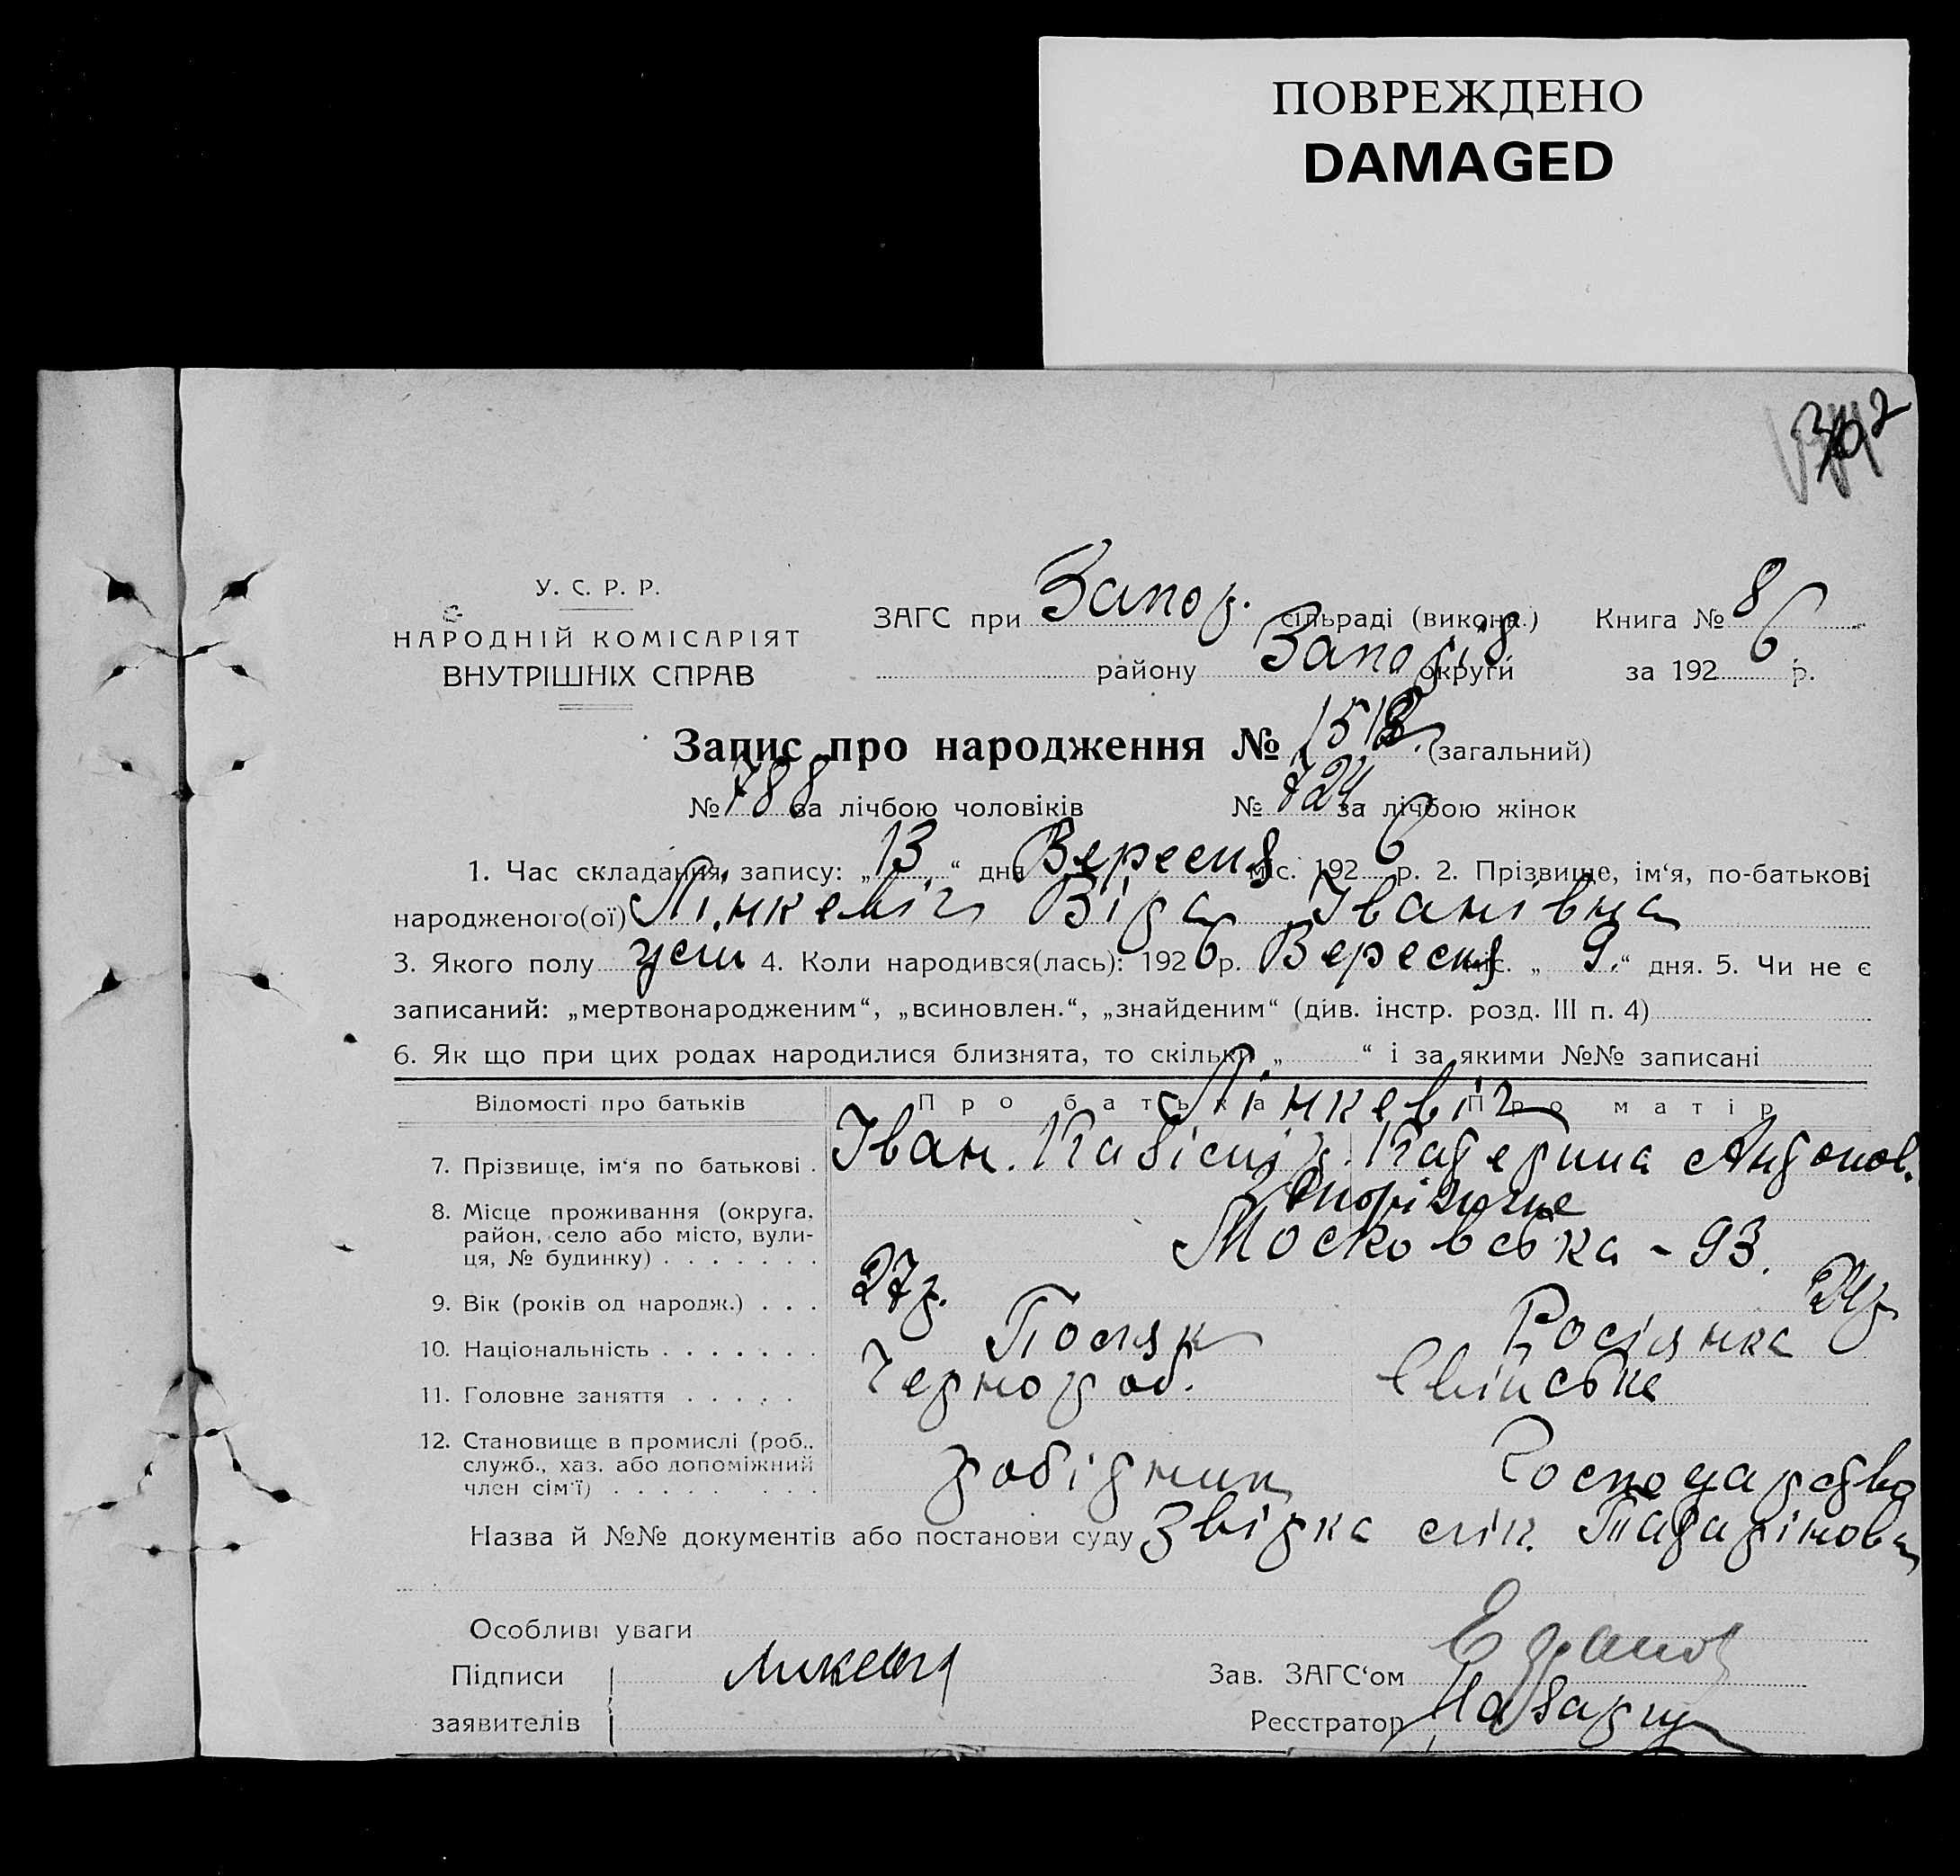 ПОВРЕЖДЕНО
DAMAGED
У. С. Р. Р.
НАРОДНІЙ КОМІСАРІЯТ
ВНУТРІШНІХ СПРАВ
ЗАГС при Запор. сільраді (викона.) Книга № 8
району Запоріз округи за 1926 р.
Запис про народження № 1512 (загальний)
№ 788 за лічбою чоловіків № 724 за лічбою жінок
1. Час складання запису: „13“ дня Вересня міс. 1926 р. 2. Прізвище, ім‘я, по-батькові
народженого(ої) Лінкевіч Віра Іванівна
3. Якого полу жіш 4. Коли народився(лась): 1926 р. Вересня міс. „9.“ дня. 5. Чи не є
записаний: „мертвонародженим“, „всиновлен.“, „знайденим“ (див. інстр. розд. III п. 4)
6. Як що при цих родах народилися близнята, то скільки „ “ і за якими №№ записані
Відомості про батьків Про батька Про матір
Лінкевіч
7. Прізвище, ім‘я по батькові . Іван. Катерина Антонов.
8. Місце проживання (округа, район, село або місто, вулиця, № будинку) . . . . . . . Запоріжжє
Московська - 93.
9. Вік (років од народж.) . . . 27р. 24р
10. Національність . . . . . . . Поляк Росіянка
11. Головне заняття . . . . . Чернороб. Свійське
12. Становище в промислі (роб., служб., хаз. або допоміжний член сім‘ї) . . . . . робітник Господарство
Назва й №№ документів або постанови суду Звідка лік. Татарінова
Особливі уваги
Підписи
заявителів Линкевич
Зав. ЗАГС‘ом
Реєстратор